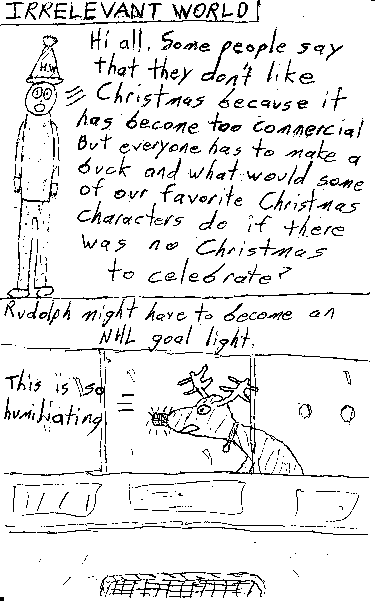 IRRELEVANT WORLD!
Hi all. Some people say
that they don't like
Christmas because it
has become too commercial
But everyone has to make a
buck and what would some
of our favorite Christmas
Characters do if there
was no Christmas
to celebrate?
Rudolph might have to become an
NHL goal light.
This is so
humiliating